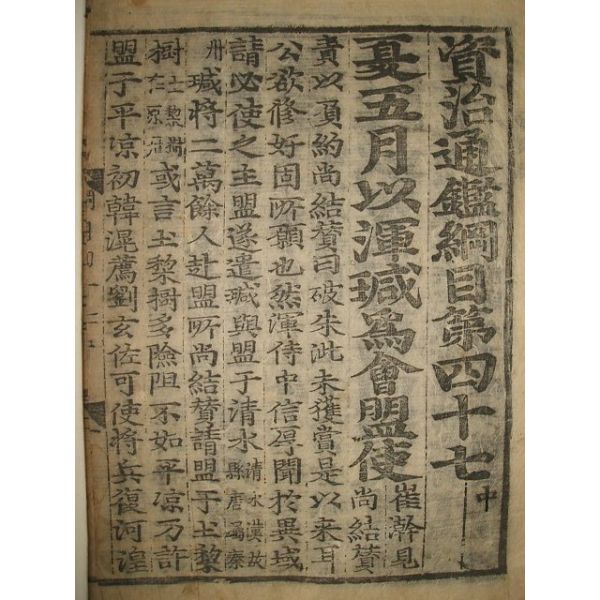 資治通鑑綱目第四十七中
夏五月以渾瑊爲會盟使崔幹見尚結贊
責以負約尚結贊曰破朱泚未獲賞是以來耳
公欲修好固所願也然渾侍中信厚聞於異域
請必使之主盟遂遣瑊與盟于清水清水漢故縣唐屬秦
州瑊將二萬餘人赴盟所尚結贊請盟于土黎
樹土黎樹在原州或言土黎樹多險阻不如平凉乃許
盟于平凉初韓滉薦劉玄佐可使將兵復河湟